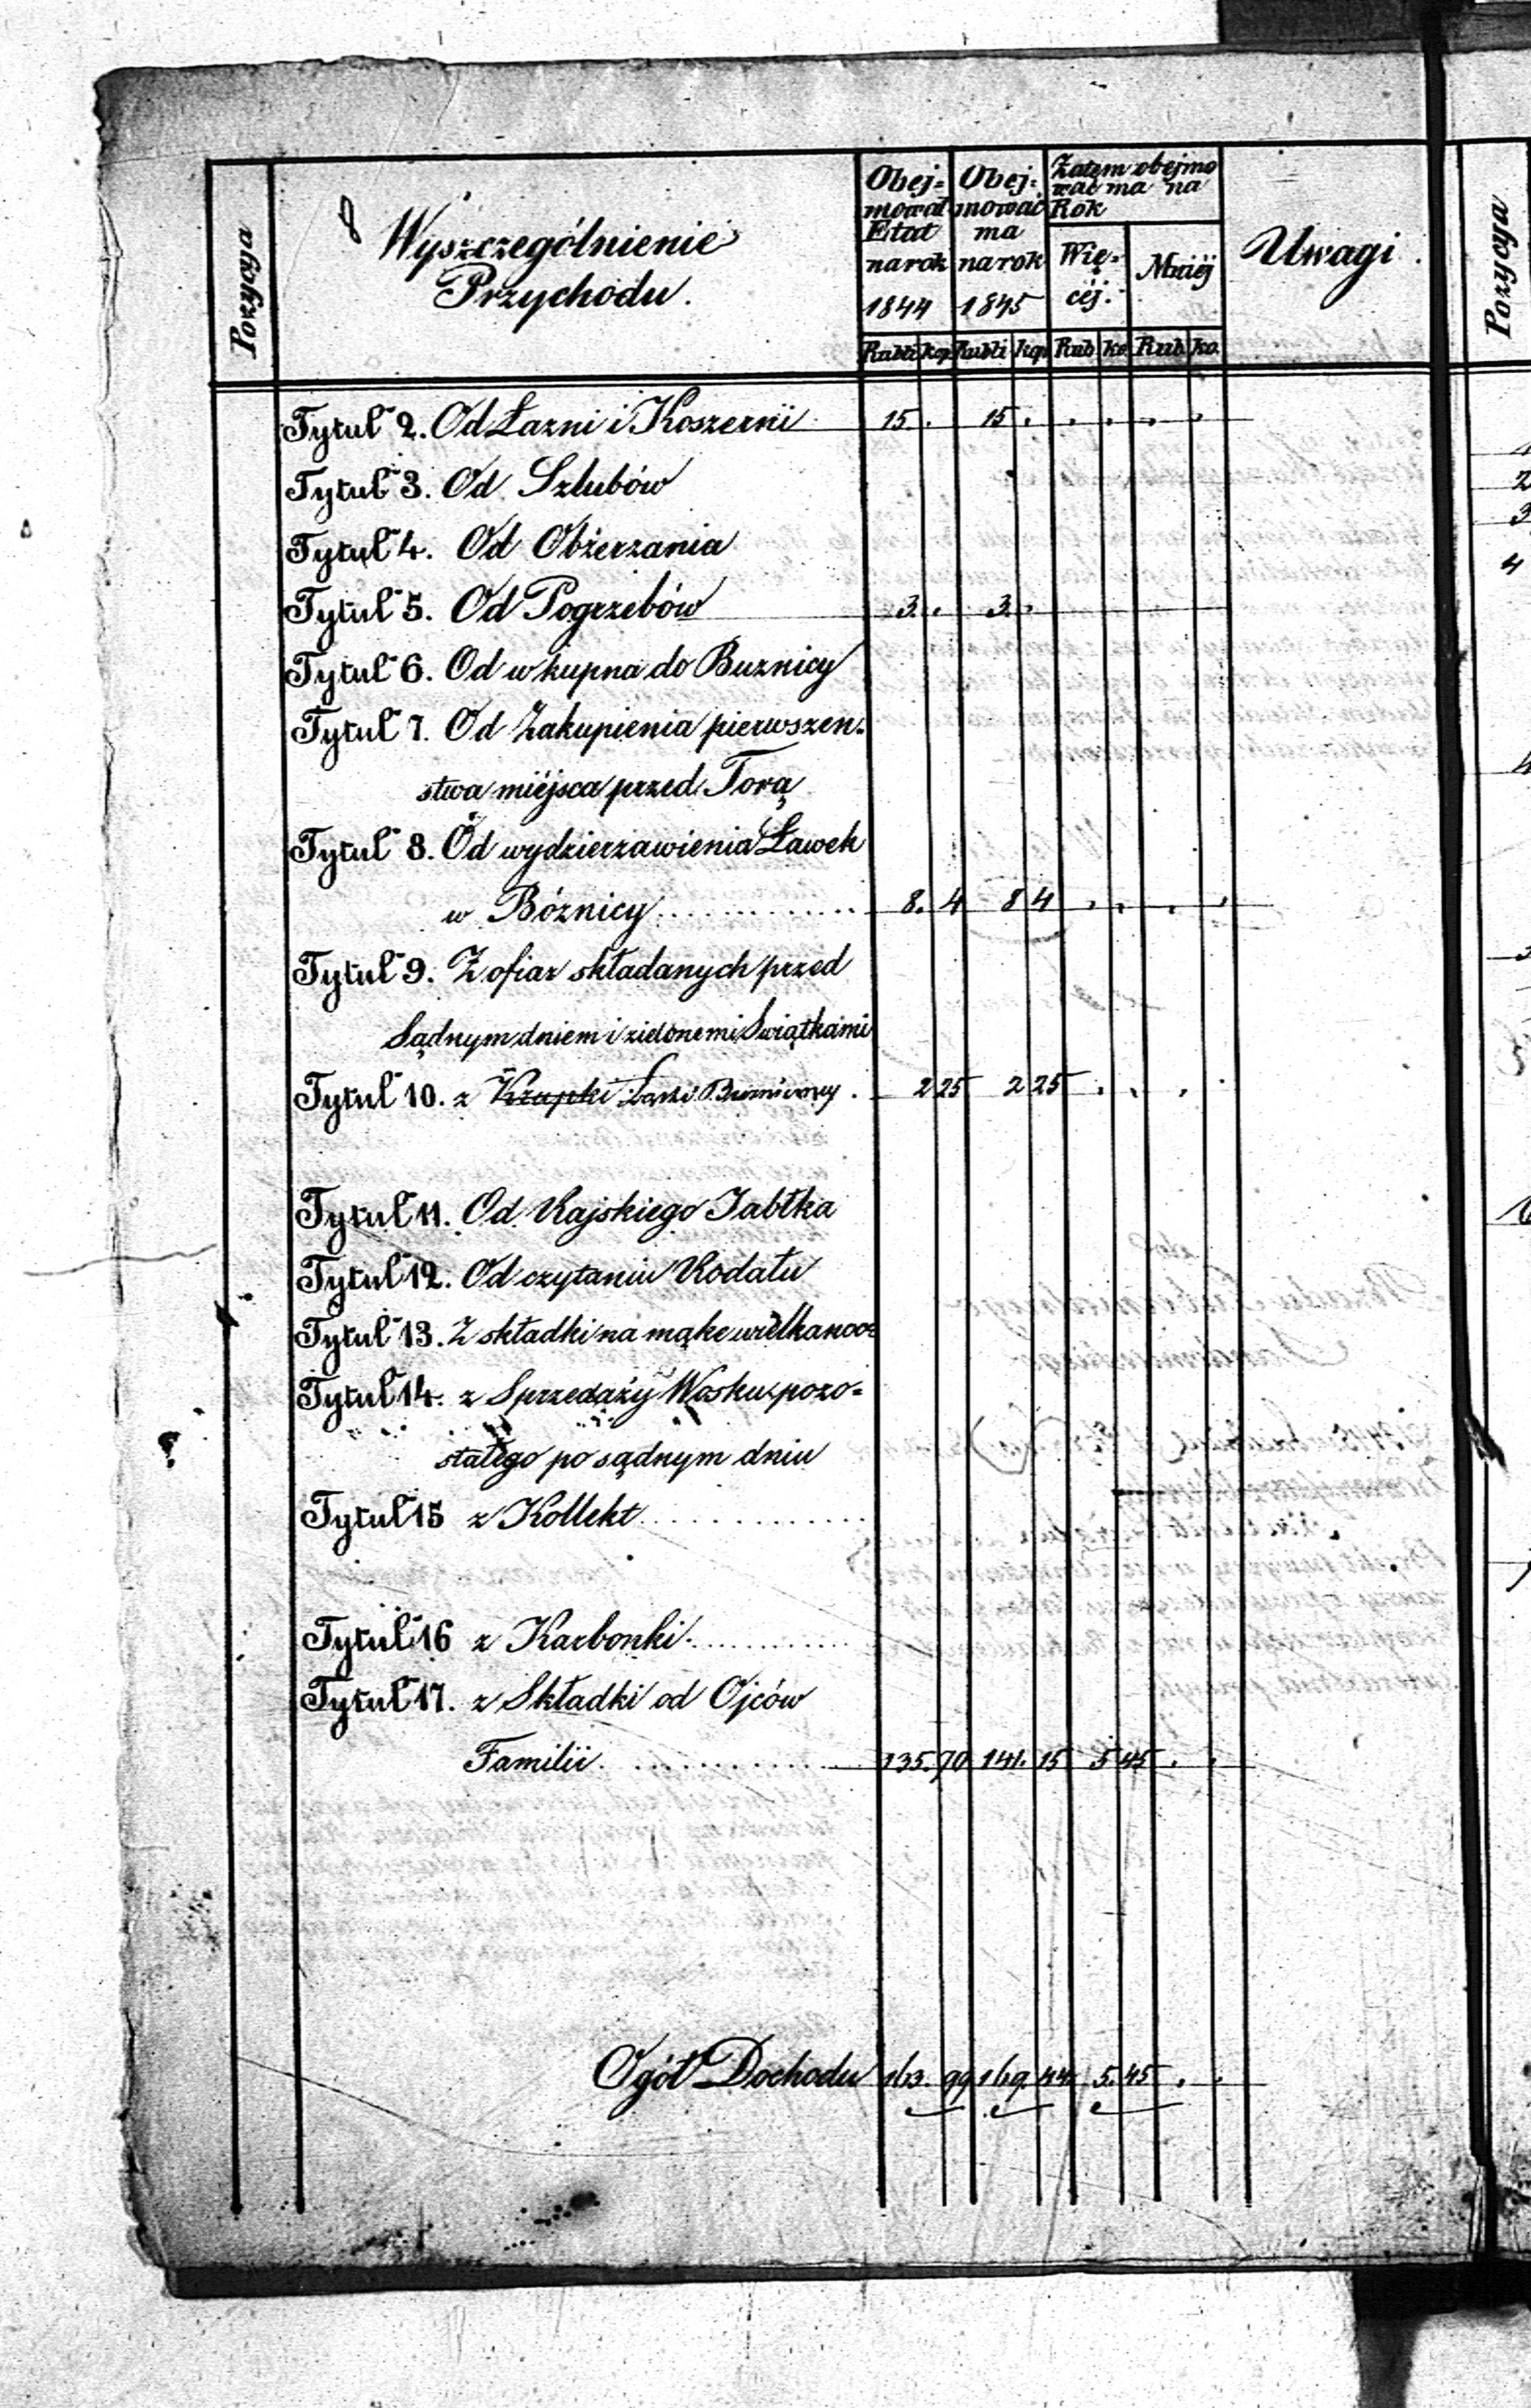 Pozycya
Wyszczególnienie
Przychodu.
Obej-
mował
Etat
na rok
1844
Obej-
mować
ma
na rok
1845
Zatem obejmo
wać ma na
Rok
Wię-
céj.
Mniéj
Uwagi
Pozycya
Rubli kop Rubli kop Rub ko Rub ko.
Tytuł 2. Od Łazni i Koszerni 15. . 15 . . . . .
Tytuł 3. Od Szlubów
Tytuł 4. Od Obżerzania
Tytuł 5. Od Pogrzebów 3. . 3. .
Tytuł 6. Od wkupna do Buznicy
Tytuł 7. Od Zakupienia pierwszen-
stwa miéjsca przed Torą
Tytuł 8. Od wydzierzawienia Ławek
w Bóżnicy . . . . . . . . . . . . 8. 4 8 4 . . . .
Tytuł 9. Z ofiar składanych przed
Sądnym dniem i zielonemi Swiątkami
Tytuł 10. z Krupki . 2 25 2 25 . . . .
Tytuł 11. Od Rajskiego Jabłka
Tytuł 12. Od czytaniu Rodału
Tytuł 13. Z składki na mąke wielkanoc
Tytuł 14. z Sprzedaży Wosku pozo-
stałego po sądnym dniu
Tytuł 15 z Kollekt . . . . . . . . . . . . .
Tytuł 16 z Karbonki . . . . . . . . . . . .
Tytuł 17. z Składki od Ojców
Familii . . . . . . . . . . . . 135. 70 141. 15 5 45 . .
Ogół Dochodu 163. 99 169. 44 5. 45 . .